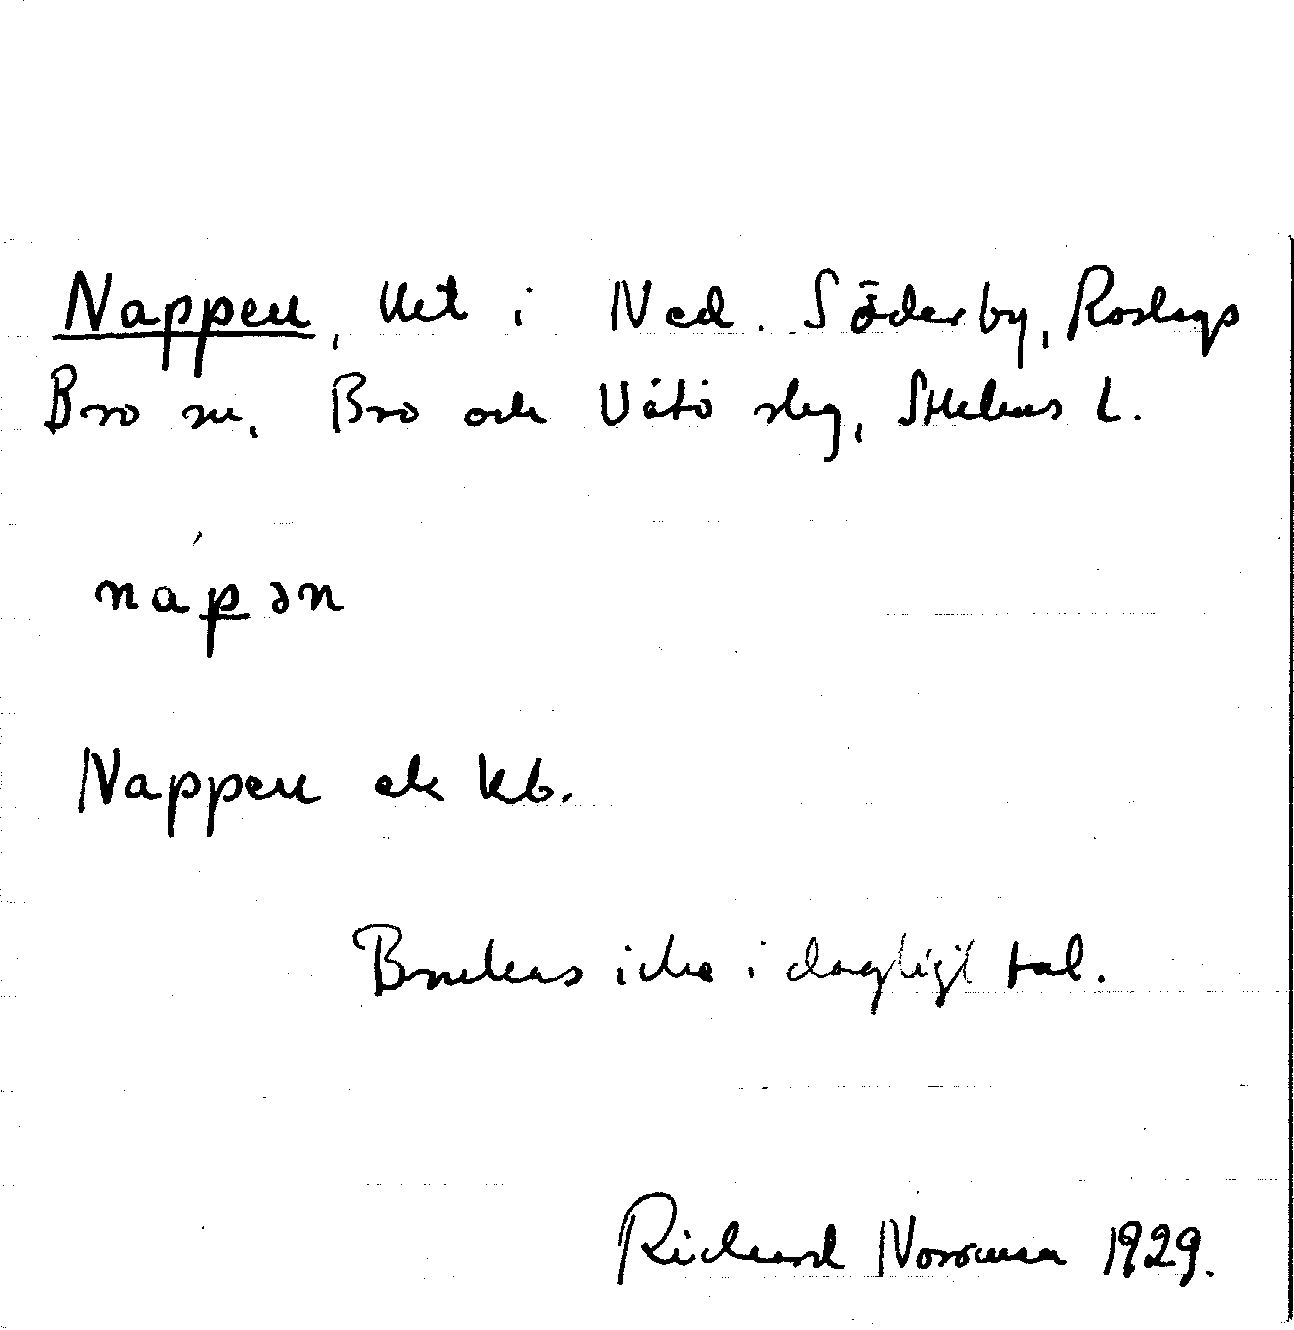 Nappen, lht i Ned. Söderby, Roslags
Bro sn, Bro och Vätö slg, Sthlms l.
nápən
Nappen ek kb.
Brukas icke i dagligt tal.
Richard Norrman 1929.